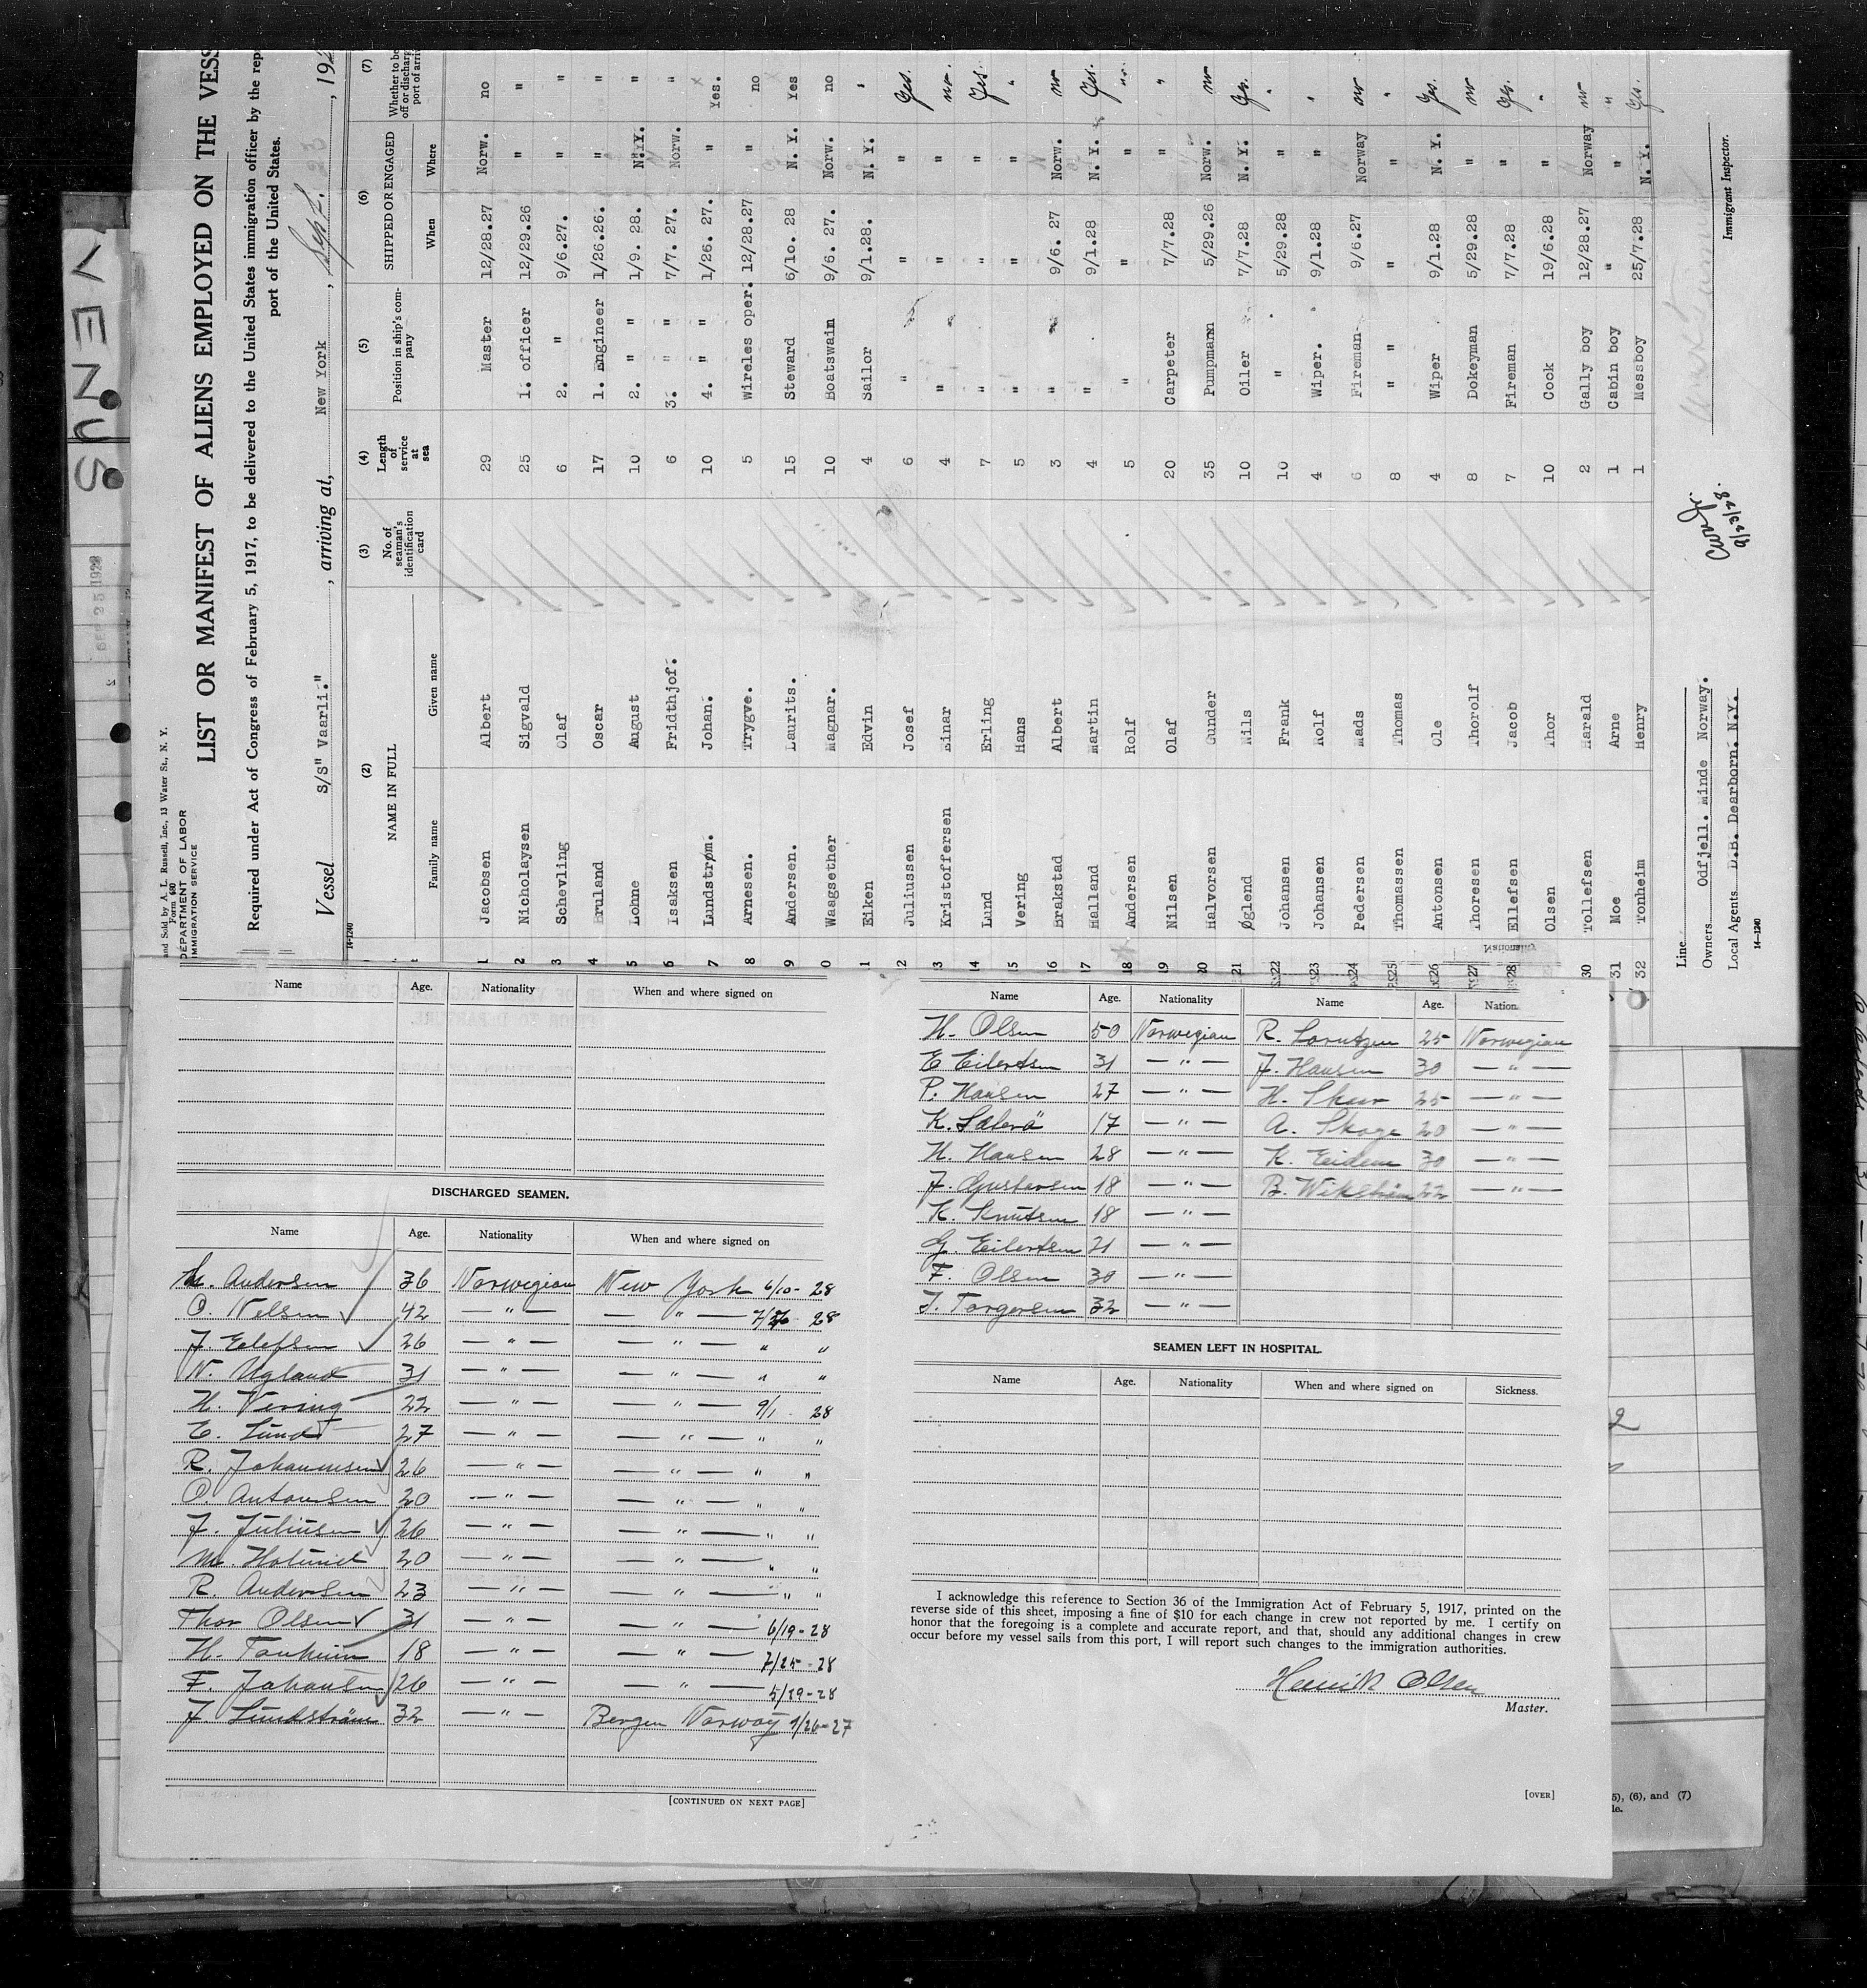 VENUS
and Sold by A. L. Russell, Inc., 13 Water St., N. Y.
Form 680
DEPARTMENT OF LABOR
IMMIGRATION SERVICE
LIST OR MANIFEST OF ALIENS EMPLOYED ON THE VESS
Required under Act of Congress of February 5, 1917, to be delivered to the United States immigration officer by the rep
port of the United States.
Vessel S/S" Vaarli." , arriving at, New York , Sept. 23 , 192
14-1240
(2) (3) (4) (5) (6) (7)
NAME IN FULL No. of seaman's identification card Length of service at sea Position in ship's company SHIPPED OR ENGAGED Whether to be off or discharg port of arriv
Family name Given name When Where
1 Jacobsen Albert 29 Master 12/28.27 Norw. no
2 Nicholaysen Sigvald 25 1. officer 12/29.26 " "
3 Schevling Olaf 6 2. " 9/6.27. " "
4 Bruland Oscar 17 1. Engineer 1/26.26. " "
5 Lohne August 10 2. " " 1/9. 28. N.Y. "
6 Isaksen Fridthjof. 6 3. " " 7/7. 27. Norw. "
7 Lundstrøm. Johan. 10 4. " " 1/26. 27. " Yes.
8 Arnesen. Trygve. 5 Wireles oper. 12/28.27 " no
9 Andersen. Laurits. 15 Steward 6/10. 28 N. Y. Yes
0 Waagsether Magnar. 10 Boatswain 9/6. 27. Norw. no
11 Eiken Edvin 4 Sailor 9/1.28. N. Y. "
12 Juliussen Josef 6 " " " Yes.
13 Kristoffersen Einar 4 " " " no.
14 Lund Erling 7 " " " Yes.
15 Vering Hans 5 " " " "
16 Brakstad Albert 3 " 9/6. 27 Norw. no
17 Halland Martin 4 " 9/1.28 N. Y. Yes.
18 Andersen Rolf 5 " " " "
19 Nilsen Olaf 20 Carpeter 7/7.28 " "
20 Halvorsen Gunder 35 Pumpmann 5/29.26 Norw. no
21 Øglend Nils 10 Oiler 7/7.28 N. Y. Yes.
22 Johansen Frank 10 " 5/29.28 " "
23 Johansen Rolf 4 Wiper. 9/1.28 " "
24 Pedersen Mads 6 Fireman 9/6.27 Norway no
25 Thomassen Thomas 8 " " " " "
26 Antonsen Ole 4 Wiper 9/1.28 N. Y. Yes.
27 Thoresen Thorolf 8 Dokeyman 5/29.28 " no
28 Ellefsen Jacob 7 Fireman 7/7.28 " Yes.
Olsen Thor 10 Cook 19/6.28 " "
30 Tollefsen Harald 2 Gally boy 12/28.27 Norway no
31 Moe Arne 1 Cabin boy " " "
32 Tonheim Henry 1 Messboy 25/7.28 N. Y. Yes.
Line
Owners Odfjell. Minde Norway.
Local Agents D.B. Dearborn. N.Y.
14-1240
9/23/28.
Immigrant Inspector.
Name Age. Nationality When and where signed on
DISCHARGED SEAMEN.
Name Age. Nationality When and where signed on
L. Andersen 36 Norwegian New York 6/10- 28
O. Nelsen 42 — " — — " — 7/ 28
J. Elefsen 26 — " — — " — " "
N. Ugland 31 — " — — " — " "
H. Vering 22 — " — — " — 9/1 28
E. Lund 27 — " — — " — " "
R. Johannsen 26 — " — — " — " "
O. Antonsen 20 — " — — " — " "
J. Juliusen 26 — " — — " — " "
M. 20 — " — — " — " "
R. Andersen 23 — " — — " — " "
Thor Olsen 31 — " — — " — 6/19-28
H. Tonheim 18 — " — — " — 7/25-28
F. Johansen 26 — " — — " — 5/29-28
J. Lundström 32 — " — Bergen Norway 1/26-27
[CONTINUED ON NEXT PAGE]
Name Age. Nationality Name Age. Nation.
H. Olsen 50 Norwegian R. Lorentzen 25 Norwegian
E Eilertsen 31 — " — J. Hansen 30 — " —
P. Hansen 27 — " — H. 25 — " —
K. 17 — " — A. Skoge 20 — " —
H. Hansen 28 — " — K. Eidem 30 — " —
J. Gustavsen 18 — " — B. 22 — " —
K. Knutsen 18 — " —
G. Eilertsen 21 — " —
F. Olsen 30 — " —
J. Torgersen 32 — " —
SEAMEN LEFT IN HOSPITAL.
Name Age. Nationality When and where signed on Sickness.
I acknowledge this reference to Section 36 of the Immigration Act of February 5, 1917, printed on the
reverse side of this sheet, imposing a fine of $10 for each change in crew not reported by me. I certify on
honor that the foregoing is a complete and accurate report, and that, should any additional changes in crew
occur before my vessel sails from this port, I will report such changes to the immigration authorities.
Henrik Olsen
Master.
[OVER]
5), (6), and (7)
le.